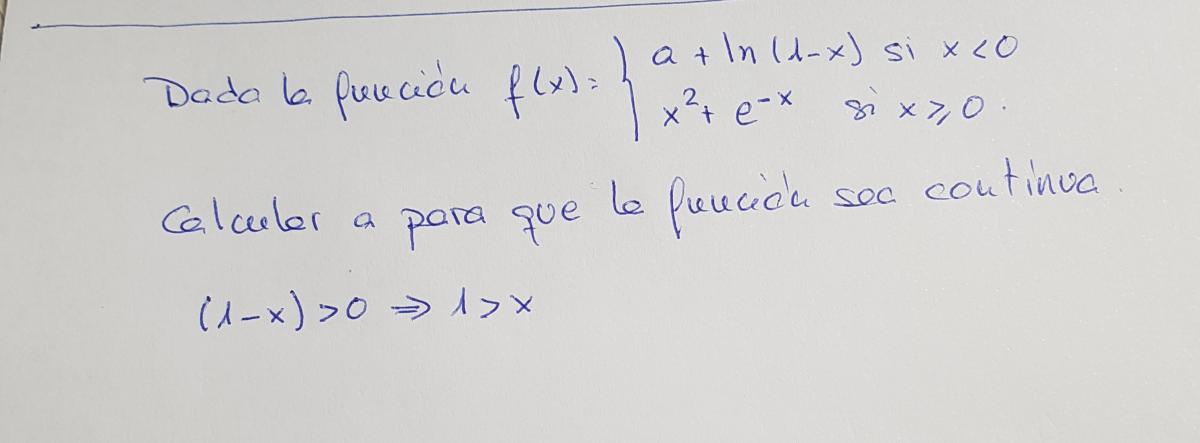 Dada la función f(x)= { a + ln (1-x) si x < 0
x² + e^-x si x ≥ 0.
Calcular a para que la función sea continua.
(1-x) > 0 ⇒ 1 > x